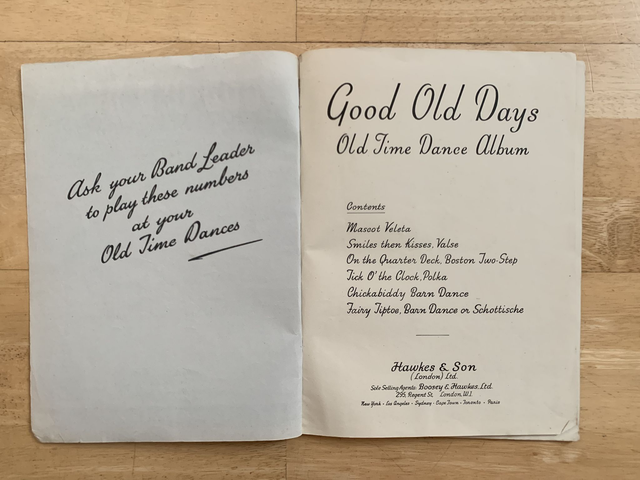 Ask your Band Leader
to play these numbers
at your
Old Time Dances
Good Old Days
Old Time Dance Album
Contents
Mascot Veleta
Smiles then Kisses, Valse
On the Quarter Deck, Boston Two-Step
Tick O' the Clock, Polka
Chickabiddy Barn Dance
Fairy Tiptoe, Barn Dance or Schottische
Hawkes & Son
(London) Ltd.
Sole Selling Agents: Boosey & Hawkes, Ltd.
295, Regent St. London, W.1.
New York - Los Angeles - Sydney - Cape Town - Toronto - Paris